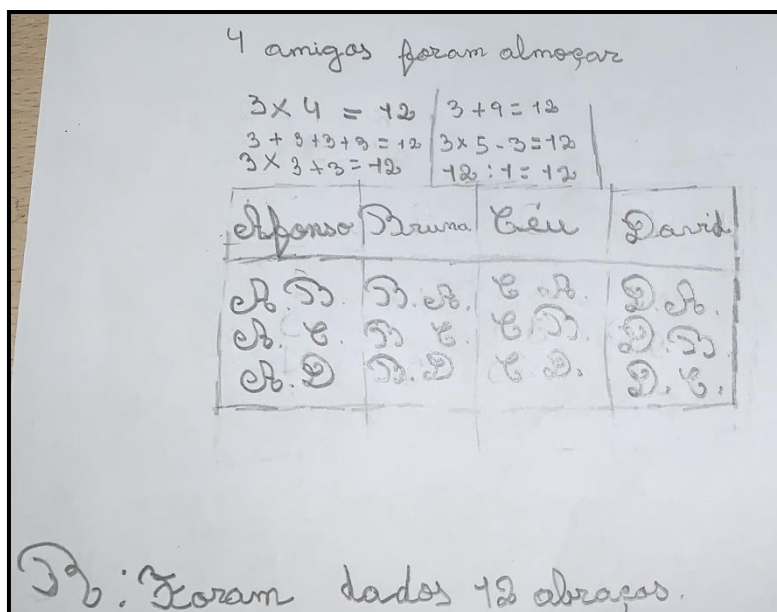 4 amigos foram almoçar
3 × 4 = 12 3 + 9 = 12
3 + 3 + 3 + 3 = 12 3 × 5 - 3 = 12
3 × 3 + 3 = 12 12 : 1 = 12
Afonso Bruna Céu David
A. B. B. A. C A. D. A.
A. C. B C. C B. D. B
A. D B. D C D. D. C.
R: Foram dados 12 abraços.